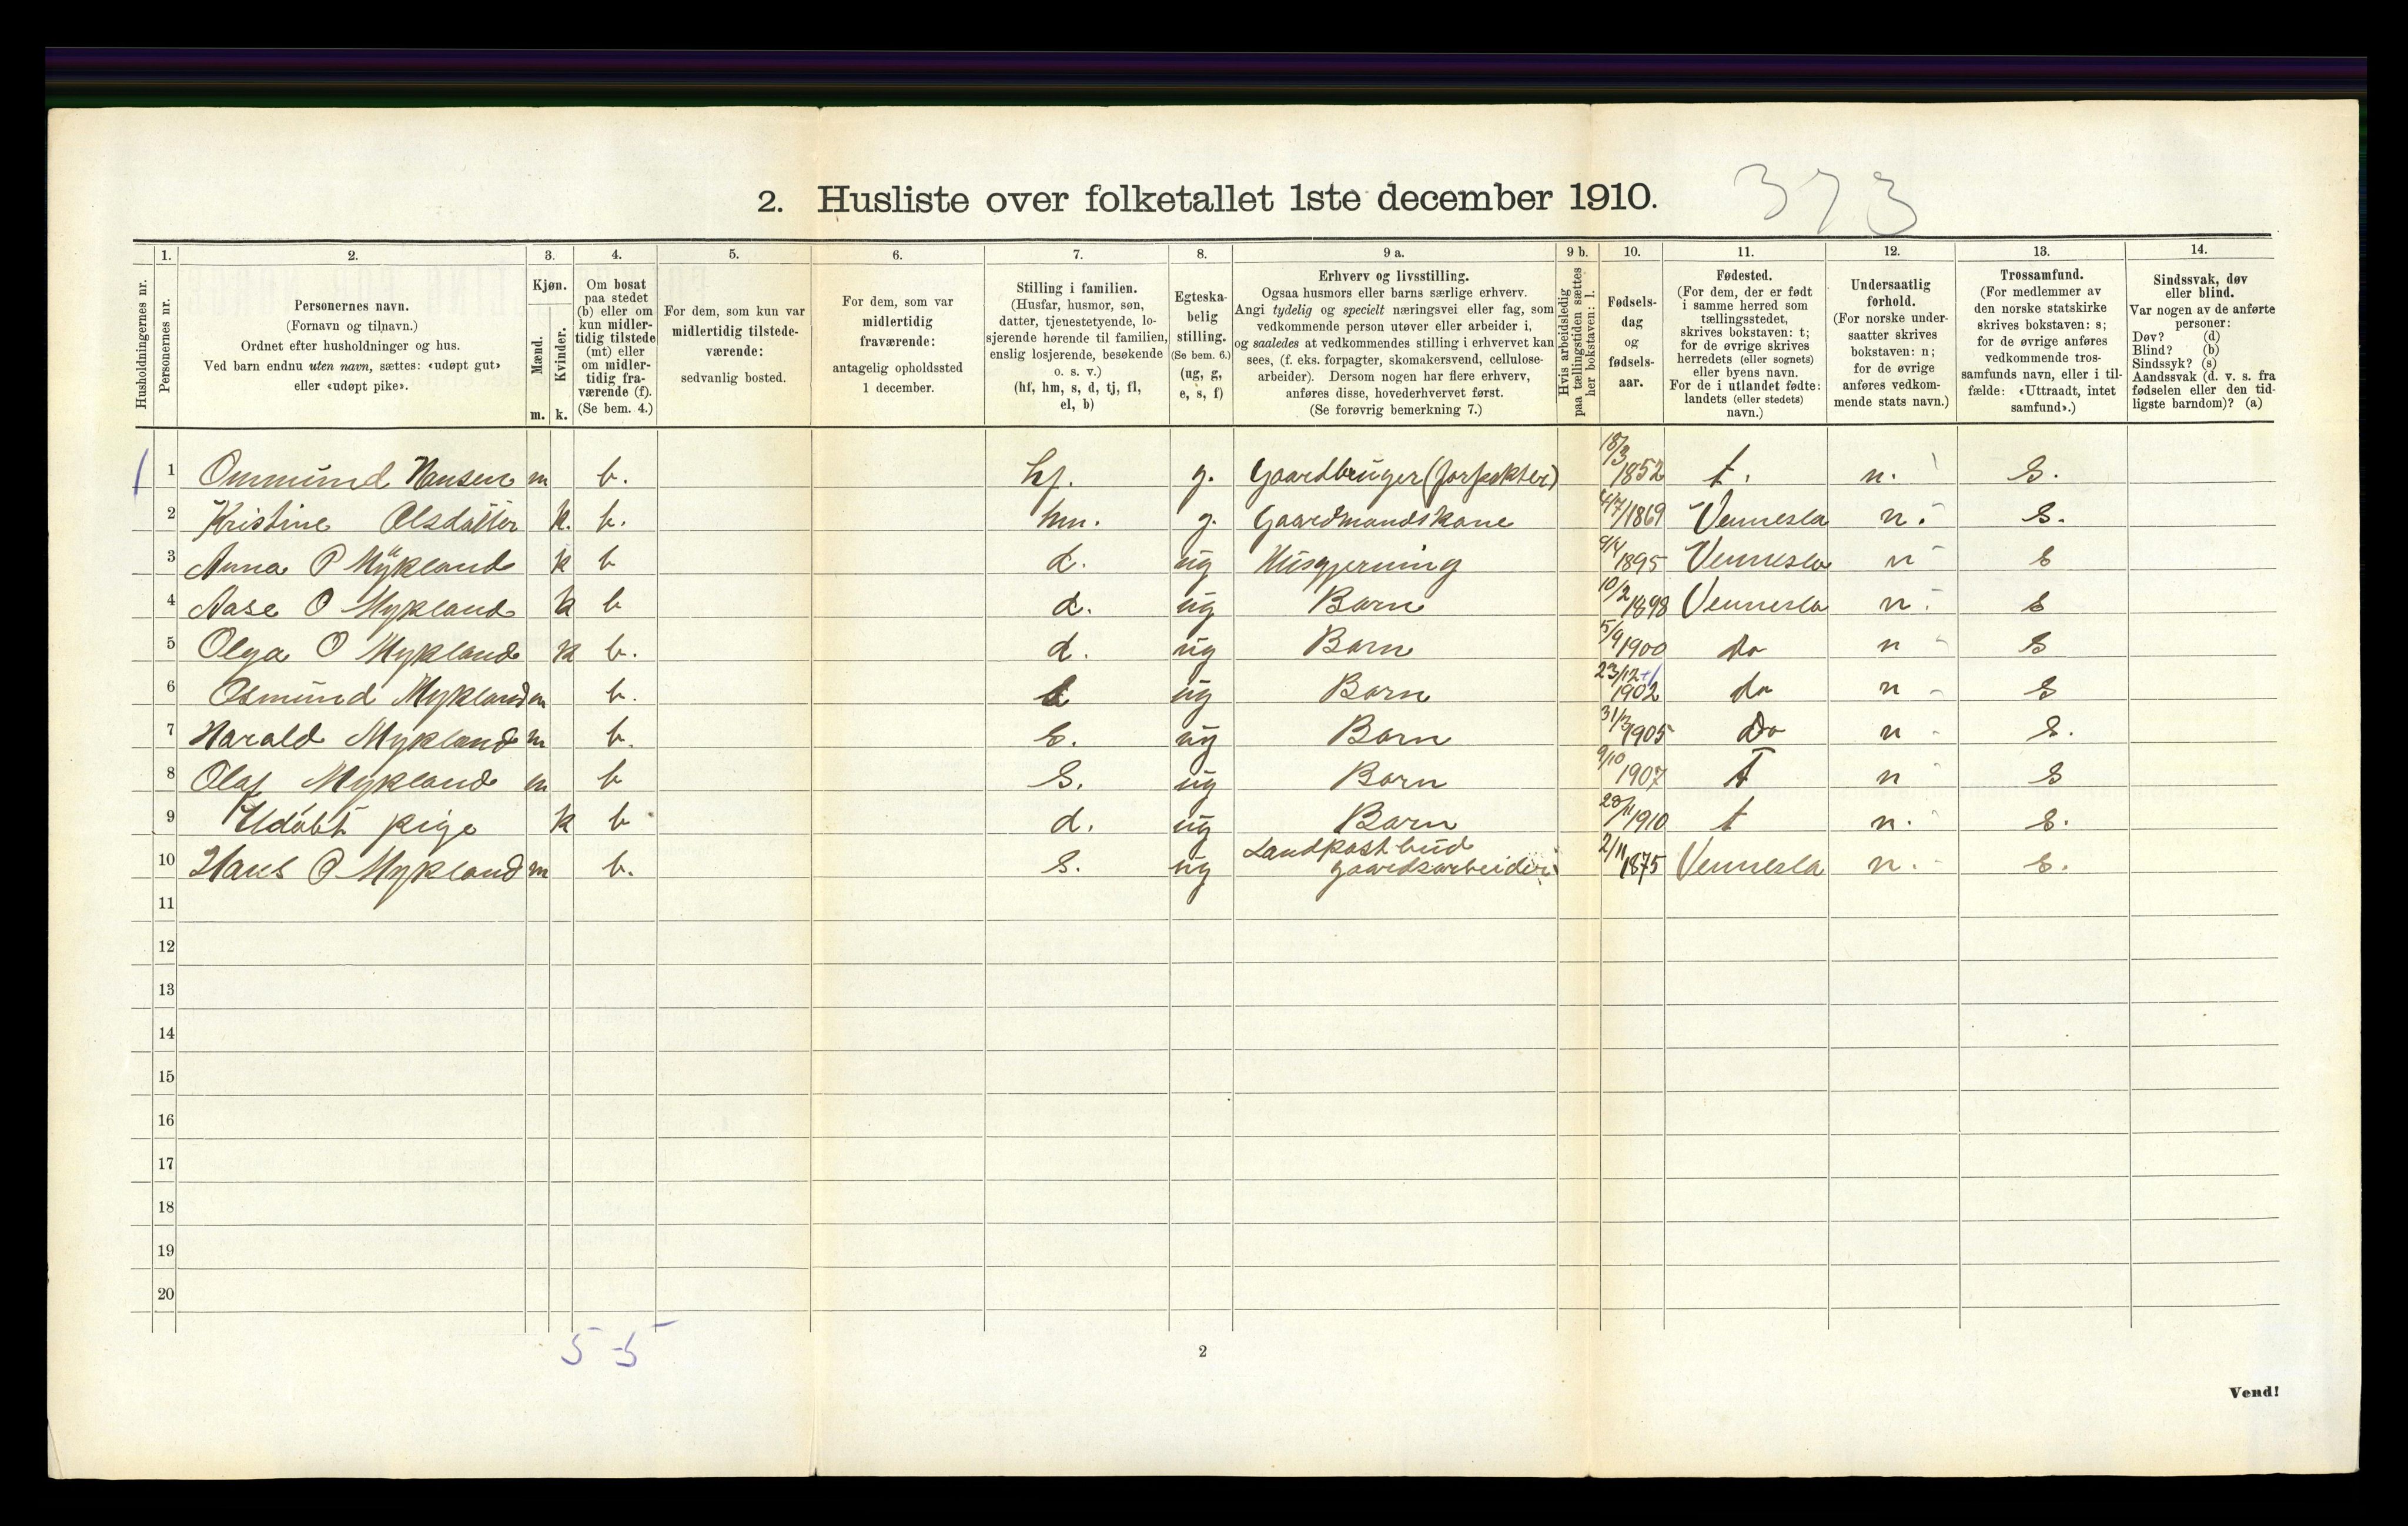 2. Husliste over folketallet 1ste december 1910. 373
Husholdningernes nr.
1. Personernes nr.
2. Personernes navn.
(Fornavn og tilnavn.)
Ordnet efter husholdninger og hus.
Ved barn endnu uten navn, sættes: «udøpt gut»
eller «udøpt pike».
3. Kjøn.
Mænd. m.
Kvinder. k.
4. Om bosat
paa stedet
(b) eller om
kun midler-
tidig tilstede
(mt) eller
om midler-
tidig fra-
værende (f).
(Se bem. 4.)
5. For dem, som kun var
midlertidig tilstede-
værende:
sedvanlig bosted.
6. For dem, som var
midlertidig
fraværende:
antagelig opholdssted
1 december.
7. Stilling i familien.
(Husfar, husmor, søn,
datter, tjenestetyende, lo-
sjerende hørende til familien,
enslig losjerende, besøkende
o. s. v.)
(hf, hm, s, d, tj, fl,
el, b)
8. Egteska-
belig
stilling.
(Se bem. 6.)
(ug, g,
e, s, f)
9 a. Erhverv og livsstilling.
Ogsaa husmors eller barns særlige erhverv.
Angi tydelig og specielt næringsvei eller fag, som
vedkommende person utøver eller arbeider i,
og saaledes at vedkommendes stilling i erhvervet kan
sees, (f. eks. forpagter, skomakersvend, cellulose-
arbeider). Dersom nogen har flere erhverv,
anføres disse, hovederhvervet først.
(Se forøvrig bemerkning 7.)
9 b. Hvis arbeidsledig
paa tællingstiden sættes
her bokstaven: l.
10. Fødsels-
dag
og
fødsels-
aar.
11. Fødested.
(For dem, der er født
i samme herred som
tællingsstedet,
skrives bokstaven: t;
for de øvrige skrives
herredets (eller sognets)
eller byens navn.
For de i utlandet fødte:
landets (eller stedets)
navn.)
12. Undersaatlig
forhold.
(For norske under-
saatter skrives
bokstaven: n;
for de øvrige
anføres vedkom-
mende stats navn.)
13. Trossamfund.
(For medlemmer av
den norske statskirke
skrives bokstaven: s;
for de øvrige anføres
vedkommende tros-
samfunds navn, eller i til-
fælde: «Uttraadt, intet
samfund».)
14. Sindssvak, døv
eller blind.
Var nogen av de anførte
personer:
Døv? (d)
Blind? (b)
Sindssyk? (s)
Aandssvak (d. v. s. fra
fødselen eller den tid-
ligste barndom)? (a)
1 1 Ommund Hansen m b. hf. g. Gaardbruger (forpakter) 18/3 1852 t. n. S.
2 Kristine Olsdatter k. b. hm. g. Gaardmandskone 4/7 1869 Vennesla n. S.
3 Anna O Mykland k b d. ug Husgjerning 9/4 1895 Vennesla n S
4 Aase O Mykland k b d. ug Barn 10/2 1898 Vennesla n S
5 Olga O Mykland k b. d. ug Barn 5/9 1900 do n S
6 Osmund Mykland m b. ug Barn 23/12 1902 do n S
7 Harald Mykland m b. S. ug Barn 31/3 1905 Do n S.
8 Olaf Mykland m b S. ug Barn 9/10 1907 T n S
9 Udøbt pige k b d. ug Barn 28/11 1910 t n. S.
10 Hans O Mykland m b. S. ug Landpostbud gaardsarbeider 2/11 1875 Vennesla n. S.
11
12
13
14
15
16
17
18
19
20
5-5
2
Vend!